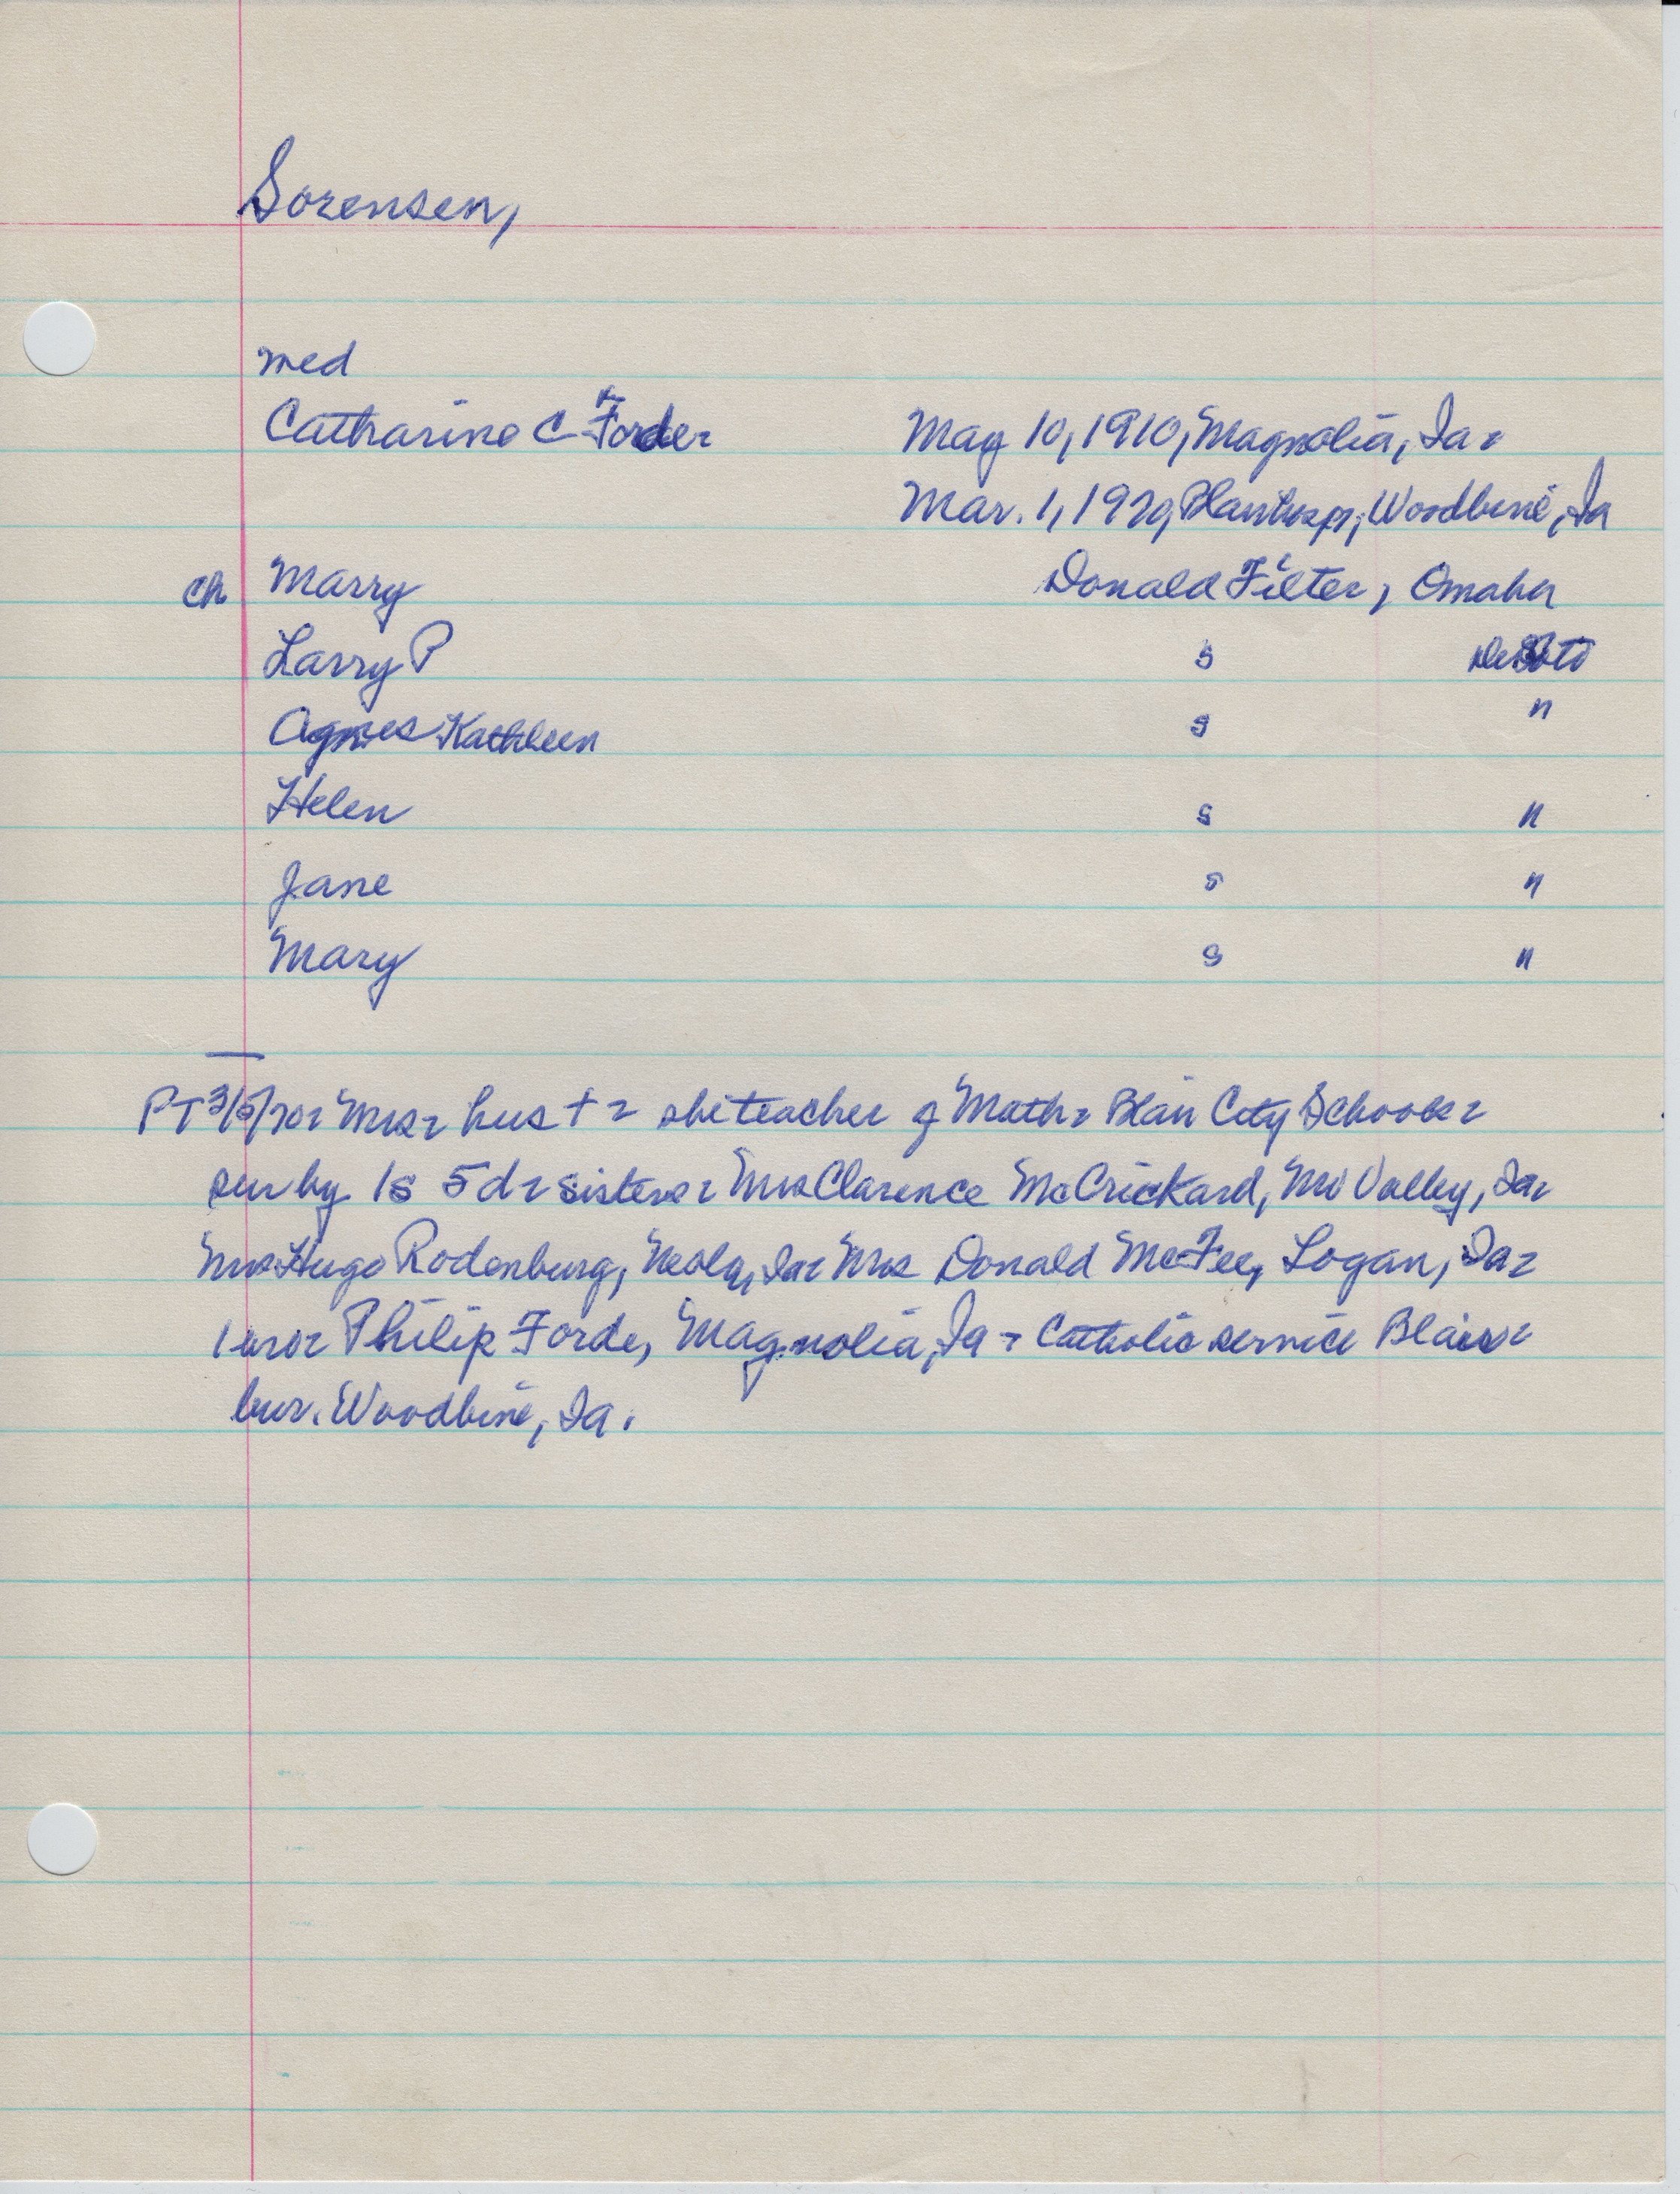 Sorensen,
med
Catharine C Forde
May 10, 1910, Magnolia, Ia.
Mar. 1, 1970, Blair hosp; Woodbine, Ia
ch Marry Donald Filter, Omaha
Larry P s DeSoto
Agnes Kathleen s "
Helen s "
Jane s "
Mary s "
PT 3/5/70. Mrs. hus + . she teacher of Math. Blair City Schools.
sur by 1s 5d. sisters. Mrs Clarence McCrickard, Mo Valley, Ia.
Mrs Hugo Rodenburg, Neola, Ia. Mrs Donald McFee, Logan, Ia.
1 bro. Philip Forde, Magnolia, Ia. Catholic service Blair.
bur. Woodbine, Ia.